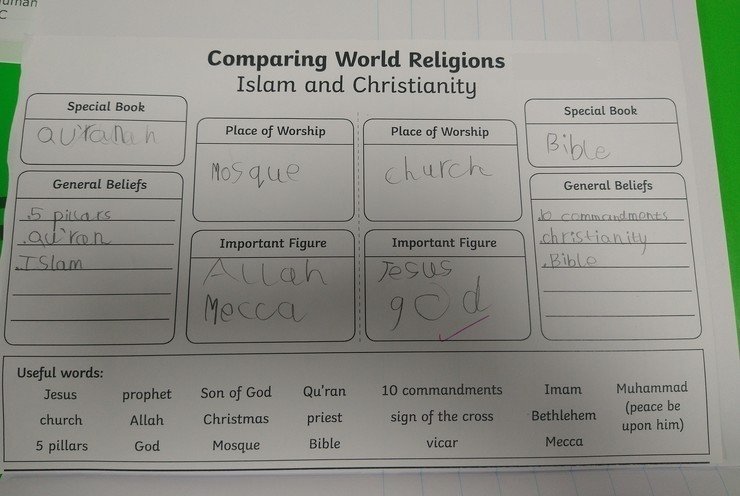 Comparing World Religions
Islam and Christianity
Special Book
Qu'ranah
General Beliefs
.5 pillars
.qu'ron
.Islam
Place of Worship
Mosque
Important Figure
Allah
Mecca
Place of Worship
church
Important Figure
Jesus
god
Special Book
Bible
General Beliefs
.10 commandments
.christianity
.Bible
Useful words:
Jesus prophet Son of God Qu'ran 10 commandments Imam Muhammad
(peace be
church Allah Christmas priest sign of the cross Bethlehem upon him)
5 pillars God Mosque Bible vicar Mecca